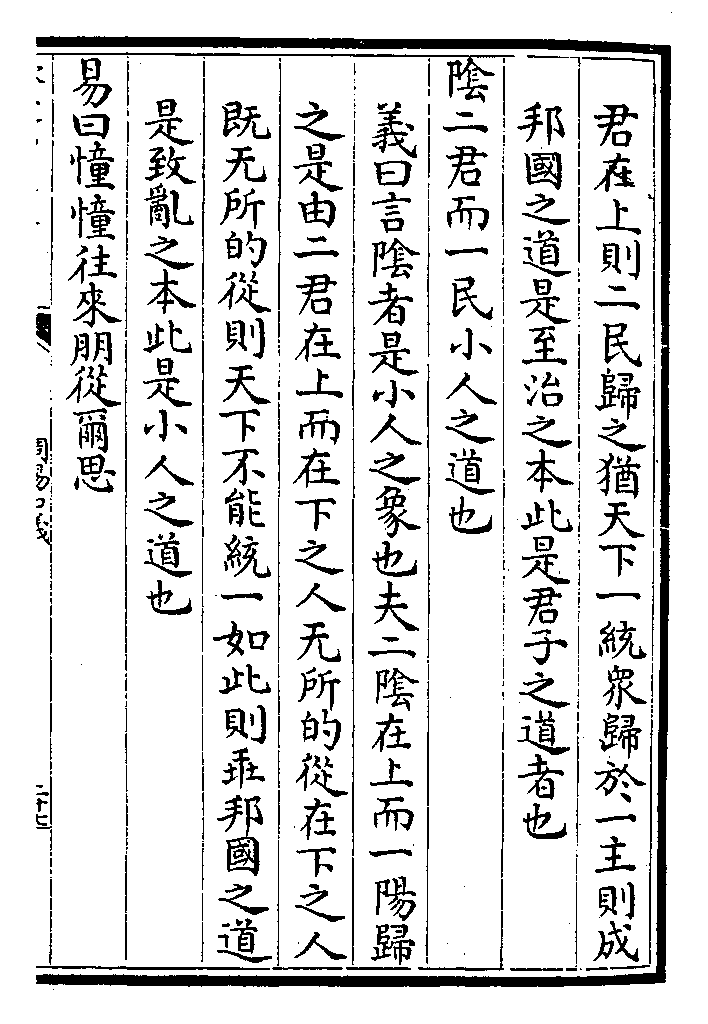 君在上則二民歸之猶天下一統衆歸於一主則成
邦國之道是至治之本此是君子之道者也
陰二君而一民小人之道也
義曰言陰者是小人之象也夫二陰在上而一陽歸
之是由二君在上而在下之人无所的從在下之人
既无所的從則天下不能統一如此則乖邦國之道
是致亂之本此是小人之道也
易曰憧憧往來朋從爾思